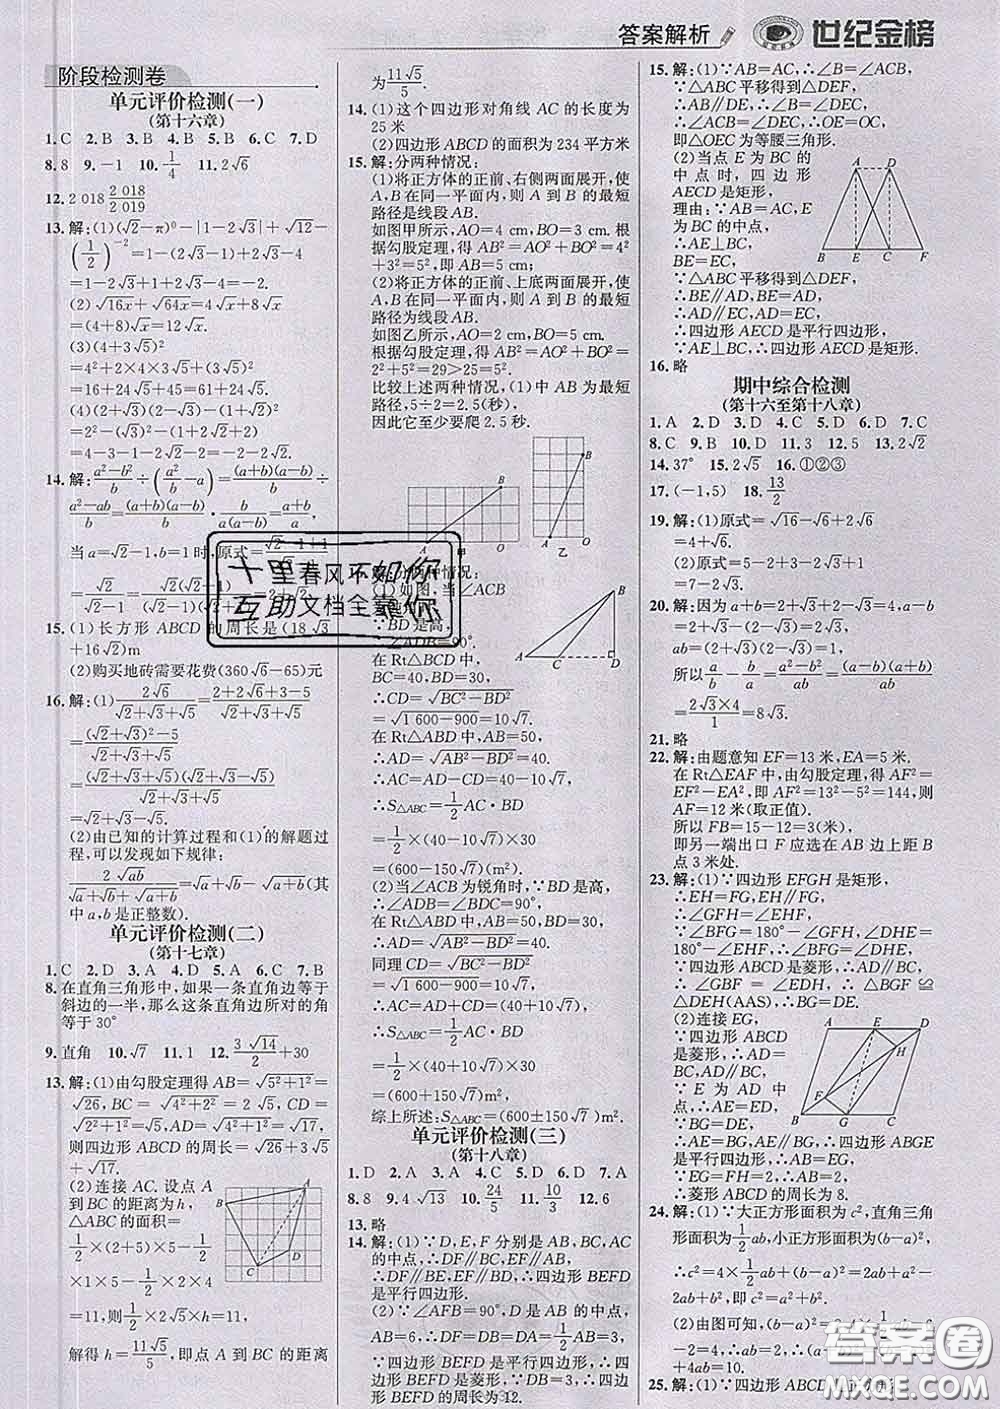 答案解析 世纪金榜
阶段检测卷
单元评价检测(一)
(第十六章)
1.C 2.B 3.B 4.B 5.B 6.C 7.D
8.8 9.-1 10.1/4 11.2√6
12.2 018 2 018/2 019
13.解:(1)(√2-π)⁰-|1-2√3|+√12-
(1/2)⁻²=1-(2√3-1)+2√3-4
=1-2√3+1+2√3-4=-2.
(2)√16x+√64x=4√x+8√x
=(4+8)√x=12√x.
(3)(4+3√5)²
=4²+2×4×3√5+(3√5)²
=16+24√5+45=61+24√5.
(4)(2+√3)(2-√3)-√2(1+√2)
=2²-(√3)²-√2-(√2)²
=4-3-√2-2=-2-√2.
14.解:(a²-b²)/b÷(a²/b-a)=(a+b)(a-b)/b
÷(a²-ab)/b=(a+b)(a-b)/b·b/a(a-b)=(a+b)/a,
当a=√2-1,b=1时,原式=(√2-1+1)/(√2-1)
15.(1)长方形ABCD的周长是(18√3
+16√2)m
(2)购买地砖需要花费(360√6-65)元
16.解:(1)2√6/(√2+√3+√5)=(2+2√6+3-5)/(√2+√3+√5)
=((√2+√3)²-5)/(√2+√3+√5)
=(√2+√3+√5)(√2+√3-√5)/(√2+√3+√5)
=√2+√3-√5.
(2)由已知的计算过程和(1)的解题过
程,可以发现如下规律:
2√ab/(√a+√b+√(a+b))=√a+√b-√(a+b)(其
中a,b是正整数).
单元评价检测(二)
(第十七章)
1.C 2.D 3.A 4.D 5.A 6.C 7.B
8.在直角三角形中,如果一条直角边等于
斜边的一半,那么这条直角边所对的角
等于30°
9.直角 10.√7 11.1 12.3√14/2+30
13.解:(1)由勾股定理得AB=√(5²+1²)=
√26,BC=√(4²+2²)=2√5,CD=
√(2²+1²)=√5,AD=√(4²+1²)=√17,
则四边形ABCD的周长=√26+3√5
+√17.
(2)连接AC.设点A
到BC的距离为h,
△ABC的面积=
1/2×(2+5)×5-1/2
×1×5-1/2×2×4
=11,则1/2×2√5×h=11,
解得h=11√5/5,即点A到BC的距离
A B C D
为11√5/5.
14.(1)这个四边形对角线AC的长度为
25米
(2)四边形ABCD的面积为234平方米
15.解:分两种情况:
(1)将正方体的正前、右侧两面展开,使
A,B在同一平面内,则A到B的最短
路径是线段AB.
如图甲所示,AO=4 cm,BO=3 cm.根
据勾股定理,得AB²=AO²+BO²=4²
+3²=5²,即AB=5.
(2)将正方体的正前、上底两面展开,使
A,B在同一平面内,则A到B的最短
路径为线段AB.
如图乙所示,AO=2 cm,BO=5 cm.
根据勾股定理,得AB²=AO²+BO²=
2²+5²=29>25=5².
比较上述两种情况,(1)中AB为最短
路径,5÷2=2.5(秒),
因此它至少要爬2.5秒.
A B 甲 A B 乙
(1)如图,当∠ACB
∵BD是高,
∠ADB=90°.
在Rt△BCD中,
BC=40,BD=30,
∴CD=√(BC²-BD²)
=√(1 600-900)=10√7.
在Rt△ABD中,AB=50,
∴AD=√(AB²-BD²)=40.
∴AC=AD-CD=40-10√7,
∴S△ABC=1/2AC·BD
=1/2×(40-10√7)×30
=(600-150√7)(m²).
(2)当∠ACB为锐角时,∵BD是高,
∴∠ADB=∠BDC=90°,
在Rt△ABD中,AB=50,BD=30,
∴AD=√(AB²-BD²)=40.
同理CD=√(BC²-BD²)=10√7,
∴AC=AD+CD=40+10√7,
∴S△ABC=1/2AC·BD
=1/2×(40+10√7)×30
=(600+150√7)(m²).
综上所述:S△ABC=(600±150√7)m².
单元评价检测(三)
(第十八章)
1.D 2.A 3.A 4.C 5.D 6.D 7.A
8.8 9.4√13 10.24/5 11.10/3 12.6
13.略
14.解:(1)∵D,E,F分别是AB,BC,AC
的中点,∴DF∥BC,EF∥AB,
∴DF∥BE,EF∥BD,∴四边形BEFD
是平行四边形.
(2)∵∠AFB=90°,D是AB的中点,
AB=6,∴DF=DB=DA=1/2AB=3.
∵四边形BEFD是平行四边形,∴四边
形BEFD是菱形.∵DB=3,∴四边形
BEFD的周长为12.
15.解:(1)∵AB=AC,∴∠B=∠ACB,
∵△ABC平移得到△DEF,
∴AB∥DE,∴∠B=∠DEC,
∴∠ACB=∠DEC,∴OE=OC,
即△OEC为等腰三角形.
(2)当点E为BC的
中点时,四边形
AECD是矩形,
理由:∵AB=AC,E
为BC的中点,
∴AE⊥BC,
BE=EC,
∵△ABC平移得到△DEF,
∴BE∥AD,BE=AD,
∴AD∥EC,AD=EC,
∴四边形AECD是平行四边形,
∵AE⊥BC,∴四边形AECD是矩形.
A D B E C F
16.略
期中综合检测
(第十六至第十八章)
1.A 2.D 3.D 4.C 5.D 6.D 7.C
8.C 9.B 10.D 11.3 12.5 13.2√2
14.37° 15.2√5 16.①②③
17.(-1,5) 18.13/2
19.解:(1)原式=√16-√6+2√6
=4+√6.
(2)原式=5-4√5+4-(13-9)
=5-4√5.
20.解:因为a+b=2+√3+2-√3=4,a-b
=2+√3-(2-√3)=2√3,
ab=(2+√3)(2-√3)=1,
所以a/b-b/a=(a²-b²)/ab=(a-b)(a+b)/ab
=2√3×4/1=8√3.
21.略
22.解:由题意知EF=13米,EA=5米.
在Rt△EAF中,由勾股定理,得AF²=
EF²-EA²,即AF²=13²-5²=144,则
AF=12米(取正值).
所以FB=15-12=3(米).
即另一端出口F应选在AB边上距B
点3米处.
23.解:(1)∵四边形EFGH是矩形,
∴EH=FG,EH∥FG,
∴∠GFH=∠EHF,
∵∠BFG=180°-∠GFH,∠DHE=
180°-∠EHF,∴∠BFG=∠DHE,
∵四边形ABCD是菱形,∴AD∥BC,
∴∠GBF=∠EDH,∴△BGF≌
△DEH(AAS),∴BG=DE.
(2)连接EG,
∵四边形ABCD
是菱形,∴AD=
BC,AD∥BC,
∵E为AD中
点,∴AE=ED,
∵BG=DE,
∴AE=BG,AE∥BG,∴四边形ABGE
是平行四边形,∴AB=EG,
∵EG=FH=2,∴AB=2,
∴菱形ABCD的周长为8.
A E D H F B G C
24.解:(1)∵大正方形面积为c²,直角三角
形面积为1/2ab,小正方形面积为(b-a)²,
∴c²=4×1/2ab+(b-a)²=2ab+a²-
2ab+b²,即c²=a²+b².
(2)由图可知,(b-a)²=
25.解:(1)∵四边形ABCD
十里春风不如你
互助文档全靠你
答案圈
MXQE.COM